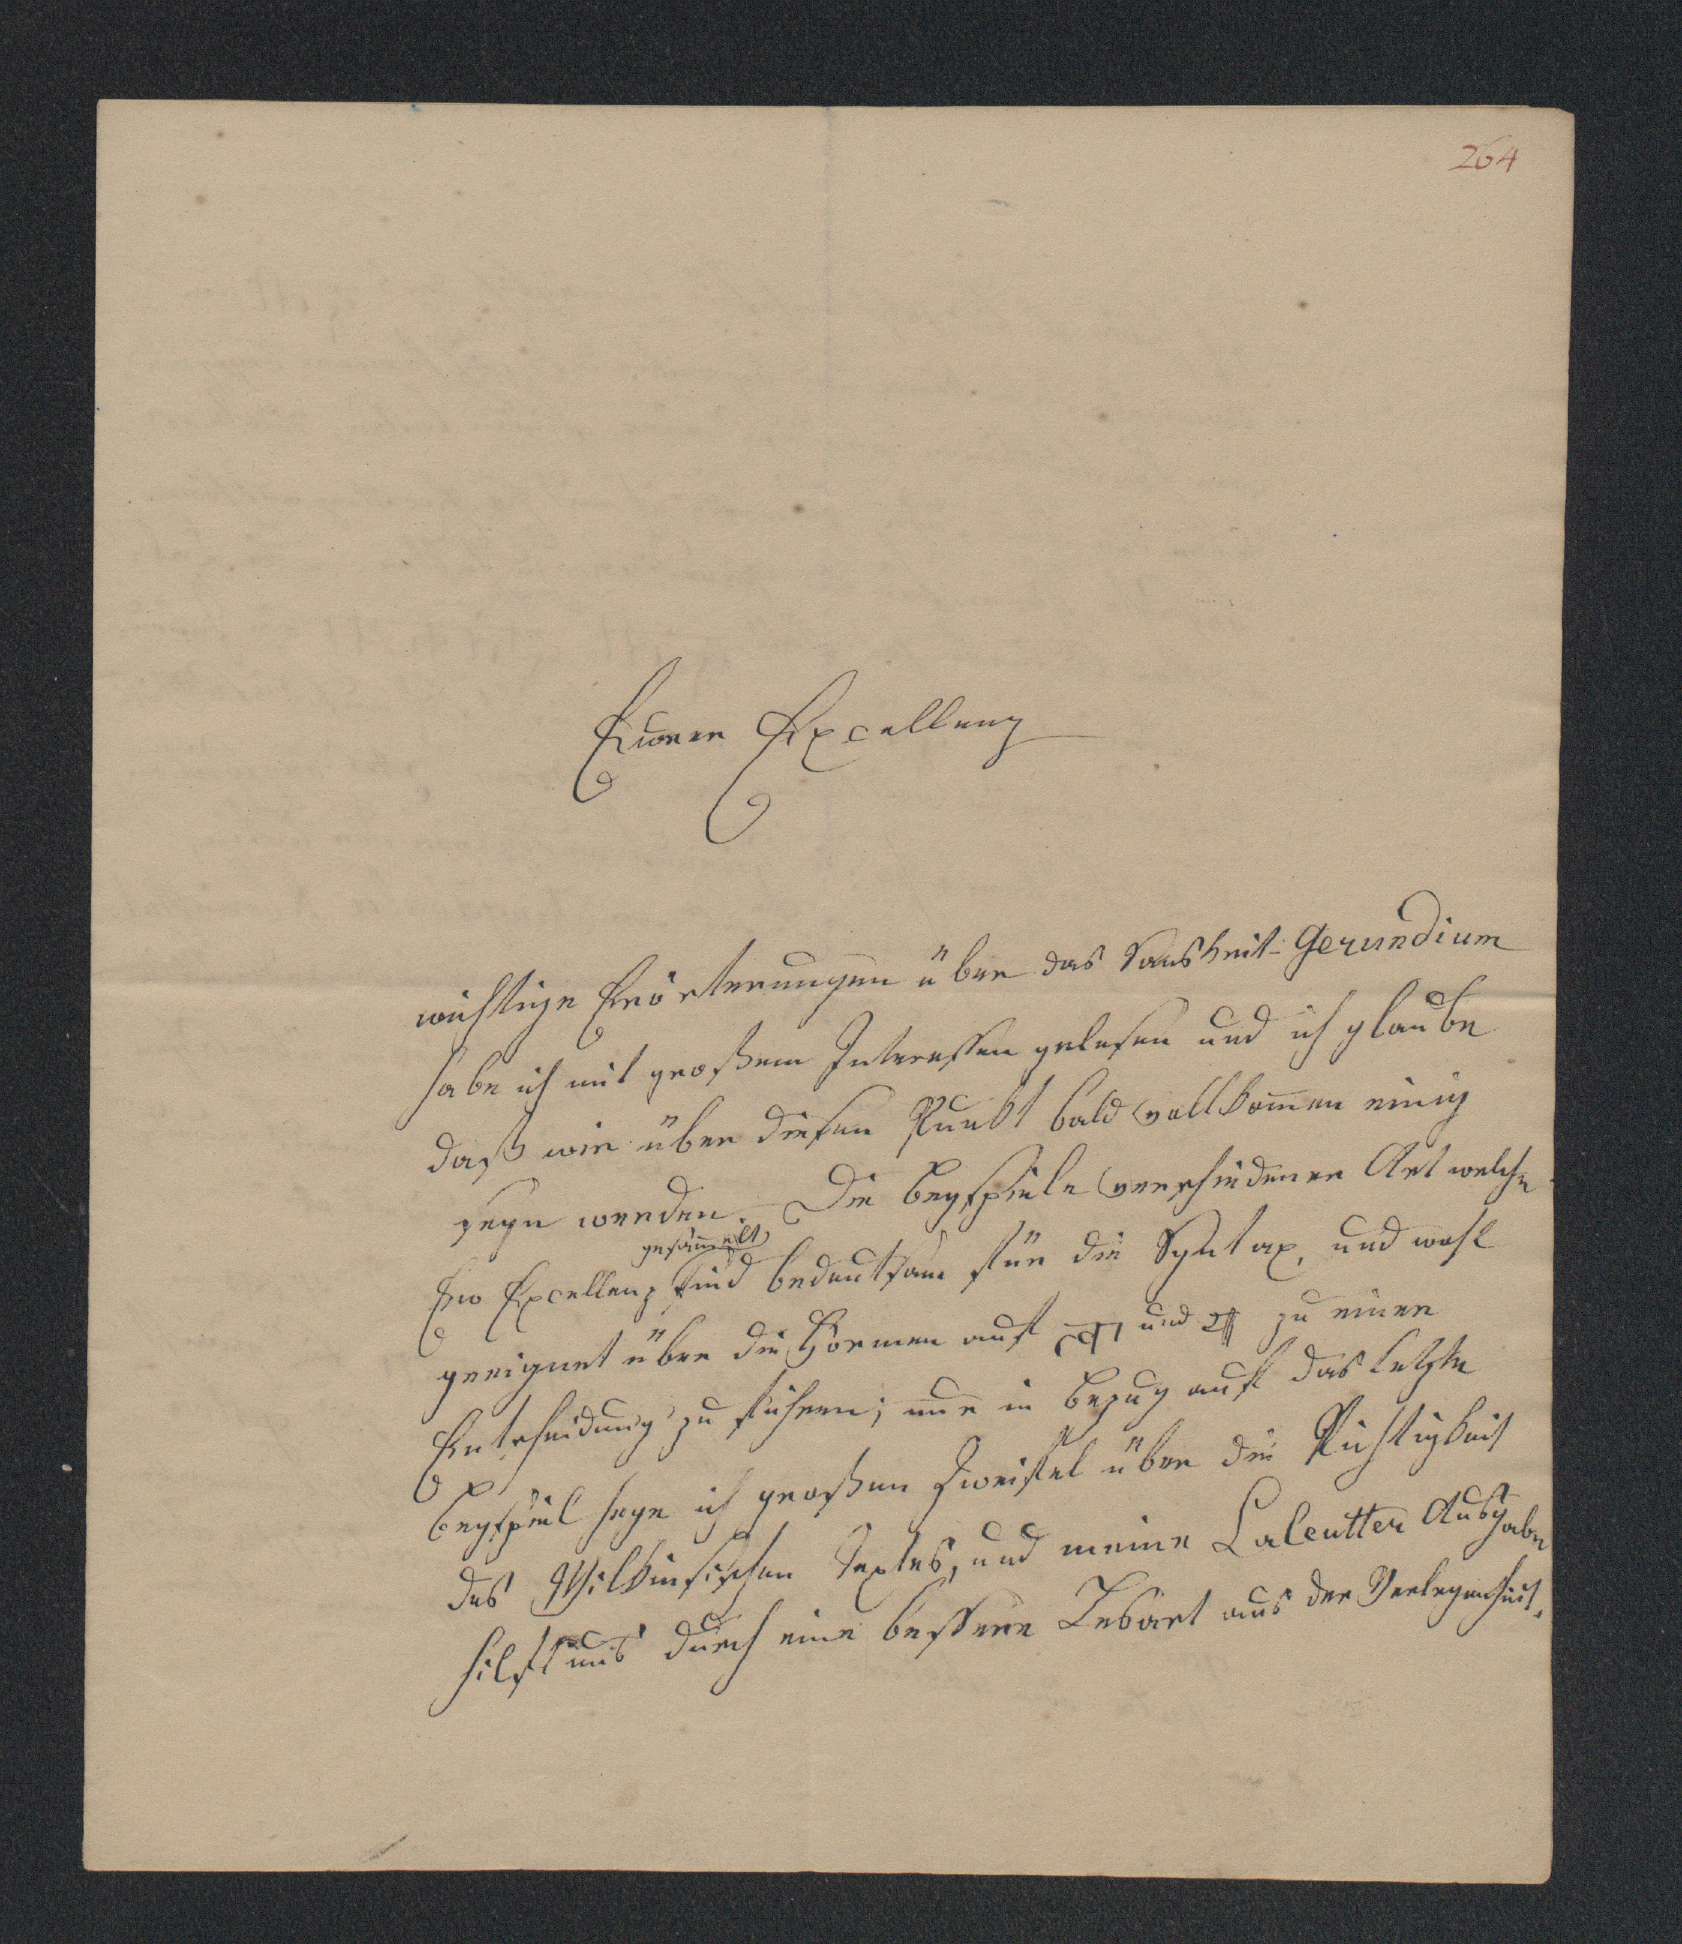 264
Eurer Excellenz
wichtige Erörterungen über das Sanskrit-Gerundium
habe ich mit großem Interessen gelesen und ich glaube
daß wir über diesen Punkt bald vollkom̄en einig
seyn werden. Die Beyspiele verschiedener Art welche
gesam̄elt
Ew Excellenz sind bedeutsam für die Syntax, und wohl
geeignet über die Formen auf त्वा und य zu einer
Entscheidung zu führen; nur in Bezug auf das letzte
Beyspiel hege ich großen Zweifel über die Richtigkeit
des Wilkinsischen Textes, und meine Calcutter Ausgabe
hilft uns durch eine bessere Lesart aus der Verlegenheit.